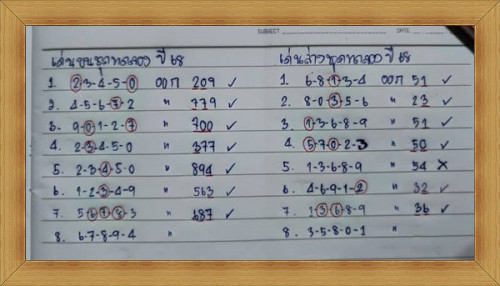 SUBJECT
DATE
เด่นบนชุดทดลอง ปี 68
1. 2-3-4-5-0 ออก 209 ✓
2. 4-5-6-7-2 " 779 ✓
3. 9-0-1-2-7 " 700 ✓
4. 2-3-4-5-0 " 377 ✓
5. 2-3-4-5-0 " 894 ✓
6. 1-2-3-4-9 " 563 ✓
7. 5-6-7-8-3 " 687 ✓
8. 6-7-8-9-4 "
เด่นล่างชุดทดลอง ปี 68
1. 6-8-1-3-4 ออก 51 ✓
2. 8-0-3-5-6 " 23 ✓
3. 1-3-6-8-9 " 51 ✓
4. 5-7-0-2-3 " 50 ✓
5. 1-3-6-8-9 " 54 ✗
6. 4-6-9-1-2 " 32 ✓
7. 1-3-6-8-9 " 36 ✓
8. 3-5-8-0-1 "